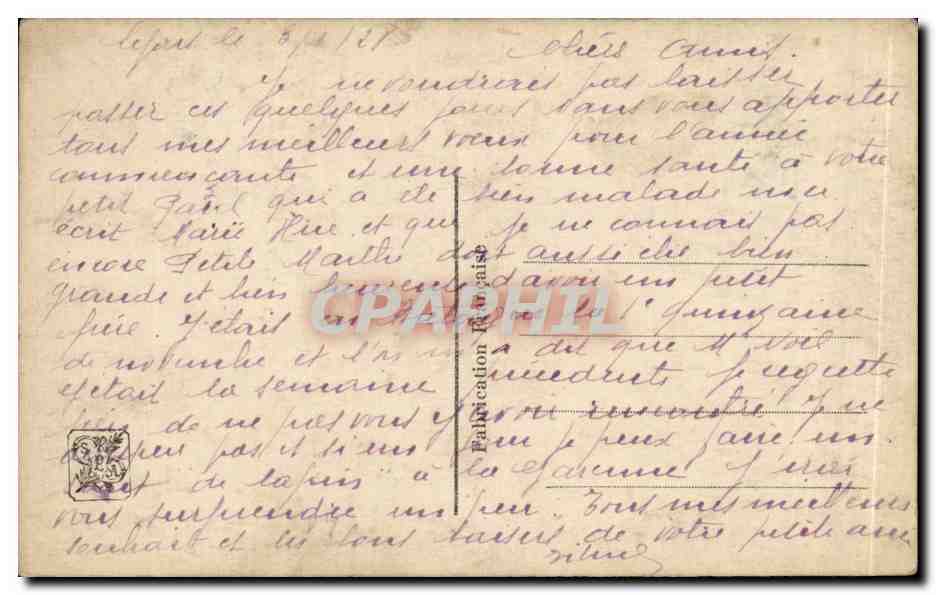 le 3/1/28
Chers Amis.
Je ne voudrais pas laisser
passer ces quelques jours sans vous apporter
tous mes meilleurs voeux pour l'année
commencante et une bonne santé à votre
petit Paul qui a été bien malade m'a
écrit Marie et que je ne connais pas
encore Petite Marthe doit aussi etre bien
grande et bien d'avoir un petit
frère. J'étais en la 1e Quinzaine
de novembre et l'on m'a dit que Mr Noël
etait la semaine precedente je regrette
de ne pas vous y avoir rencontré Je ne
pas et si un jour je peux faire un
de lapin à la Garenne j'irai
vous surprendre un peu. Tous mes meilleurs
souhait et les bons baisers de votre petite amie
Fabrication Française
CPAPHIL